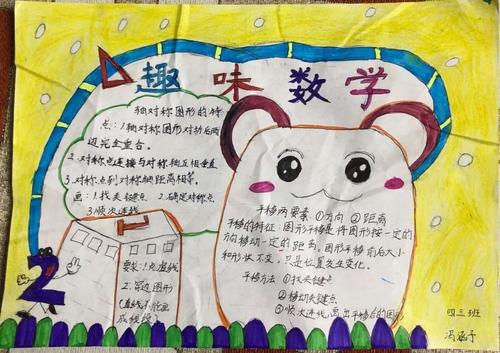 趣味数学
轴对称图形的特
点:1.轴对称图形对折后两
边完全重合。
2.对称点连接与对称轴互相垂直
3.对称点到对称轴距离相等。
画:1.找关键点 2.确定对称点
3.顺次连线
要求:1.虚线
2.另边图形
(虚线不能画
成线段)
2
平移两要素 ①方向 ②距离
平移的特征:图形平移是将图形按一定的
方向移动一定的距离。图形平移前后大小
和形状不变,只是位置发生变化。
平移方法 ①找关键点
②移动关键点
③顺次连线,画出平移后的图形
四三班